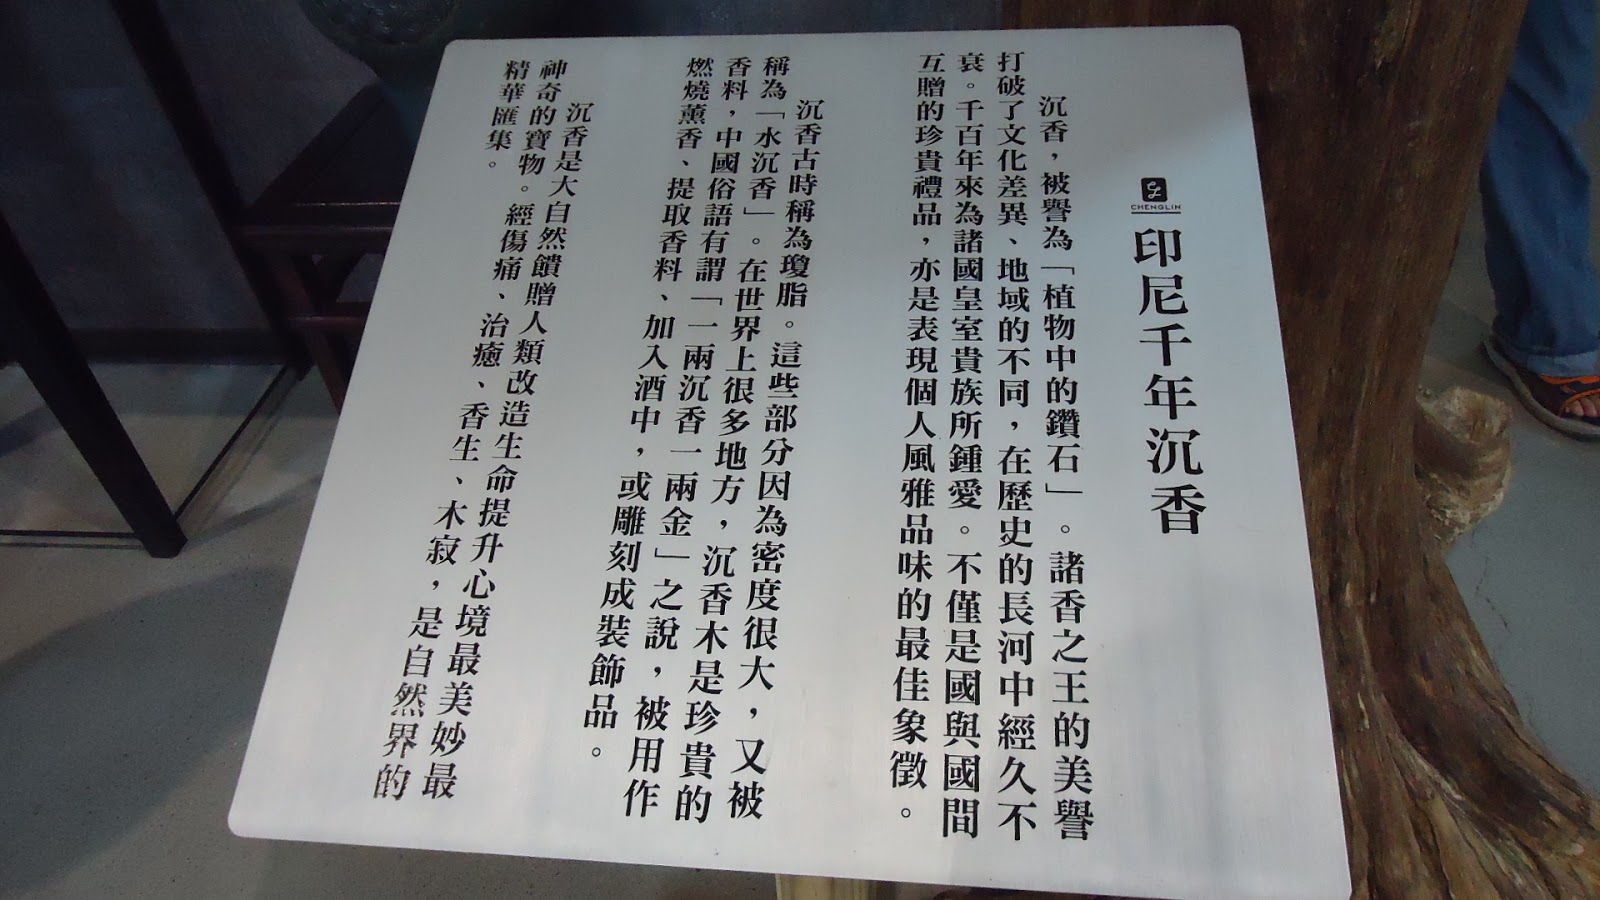 CHENGLIN
印尼千年沉香
沉香，被譽為「植物中的鑽石」。諸香之王的美譽
打破了文化差異、地域的不同，在歷史的長河中經久不
衰。千百年來為諸國皇室貴族所鍾愛。不僅是國與國間
互贈的珍貴禮品，亦是表現個人風雅品味的最佳象徵。
沉香古時稱為瓊脂。這些部分因為密度很大，又被
稱為「水沉香」。在世界上很多地方，沉香木是珍貴的
香料，中國俗語有謂「一兩沉香一兩金」之說，被用作
燃燒薰香、提取香料、加入酒中，或雕刻成裝飾品。
沉香是大自然饋贈人類改造生命提升心境最美妙最
神奇的寶物。經傷痛、治癒、香生、木寂，是自然界的
精華匯集。